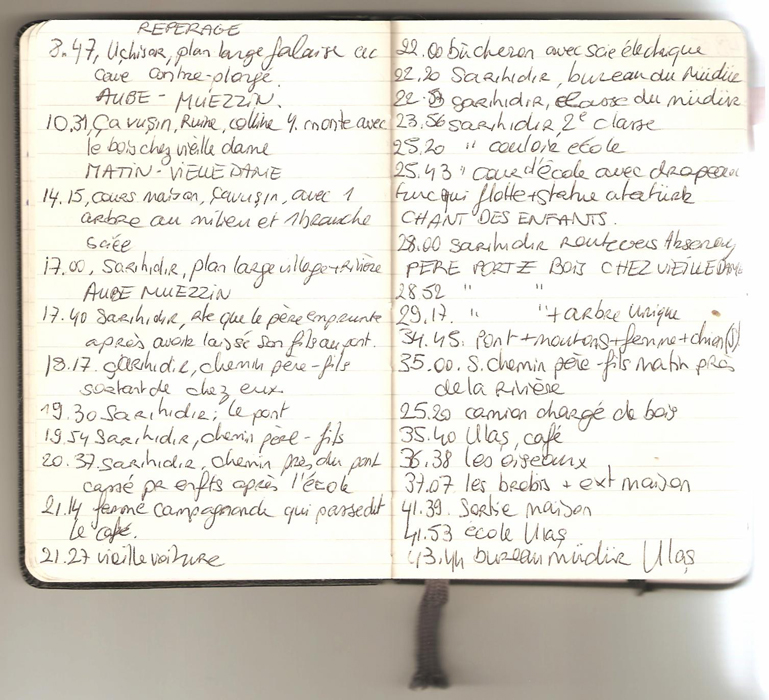 REPERAGE
8.47, Uçhisar, plan large falaise av
cave contre-plongé.
AUBE - MUEZZIN.
10.31, Çavuşin, Ruine, colline Y. monte avec
le bois chez vieille dame
MATIN - VIEILLE DAME
14.15, cours maison, Çavuşin, avec 1
arbre au milieu et 1 branche
sciée
17.00, Sarıhıdır, plan large village + rivière
AUBE MUEZZIN
17.40 Sarıhıdır, rte que le père emprunte
après avoir laissé son fils au pont.
18.17. Sarıhıdır, chemin père-fils
sortant de chez eux.
19.30 Sarıhıdır; le pont
19.54 Sarıhıdır, chemin père-fils
20.37. Sarıhıdır, chemin près du pont
cassé pr enfts après l'école
21.14 femme campagnarde qui passe dvt
le café.
21.27 vieille voiture
22.00 bûcheron avec scie électrique
22.20 Sarıhıdır, bureau du Müdür
22. Sarıhıdır, classe du müdür
23.56 Sarıhıdır, 2e classe
25.20 " couloir école
25.43 " cour d'école avec drapeau
turc qui flotte + statue atatürk
CHANT DES ENFANTS.
28.00 Sarıhıdır route vers
PERE PORTE BOIS CHEZ VIEILLE DAME
28 52 " "
29.17. " " + arbre unique
34.45. Pont + moutons + femme + chien(s)
35.00. S. chemin père-fils matin près
de la rivière
25.20 camion chargé de bois
35.40 Ulaş, café
36.38 les oiseaux
37.07 les brebis + ext maison
41.39. Sortie maison
41.53 école Ulaş
43.44 bureau müdür Ulaş